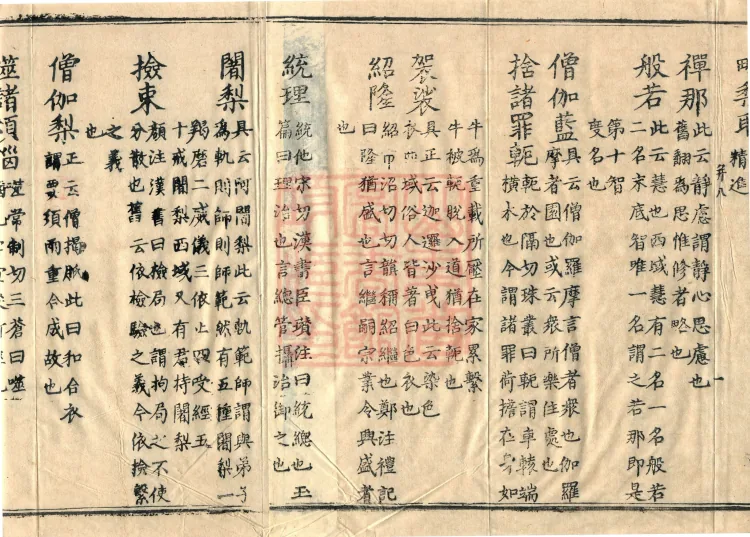 精進
禪那 此云靜慮謂靜心思慮也
舊翻為思惟修者略也
般若 此云慧也西域慧有二名一名般若
二名末底智唯一名謂之若那即是
第十智
變名也
僧伽藍 具云僧伽羅摩言僧者衆也伽羅
摩者園也或云衆所樂住處也
捨諸罪軛 軛於隔切珠叢曰軛謂車轅端
橫木也今謂諸罪荷擔在身如
牛為重載所壓在家累繫
牛被軛脫入道猶捨軛也
袈裟 具正云迦邏沙曳此云染色
衣西域俗人皆著白色衣也
紹隆 紹市沼切切韻稱紹繼也鄭注禮記
曰隆猶盛也言繼嗣宗業令興盛者
也
統理 統他宋切漢書臣瓚注曰統總也玉
篇曰理治也言總管攝治御之也
闍梨 具云阿闍梨此云軌範師謂與弟子
為軌則師則師範然有五種闍梨一
羯磨二威儀三依止四受經五
十戒闍梨西域又有君持闍梨
撿束 顏注漢書曰撿局也謂拘局之不使
分散也舊云依撿驗之義今依撿繫
之義
也
僧伽梨 具正云僧揭胝此曰和合衣
謂要須兩重合成故也
筮諸煩惱 筮常制切三蒼曰噬